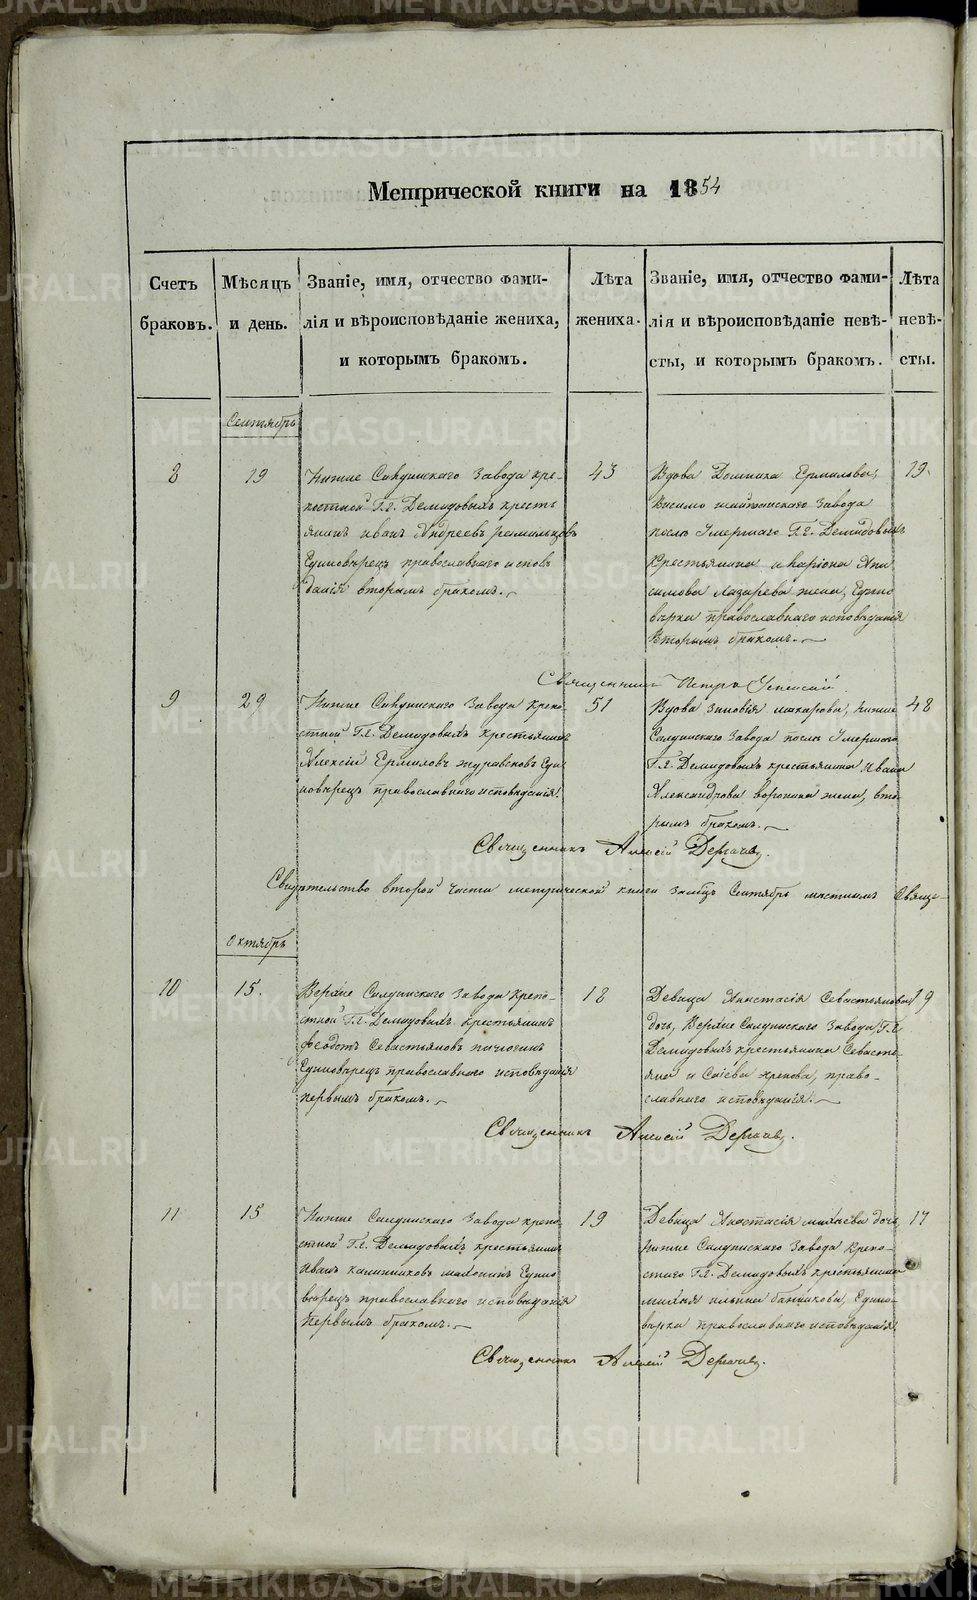 Метрической книги на 1854
Счетъ браковъ.
Мѣсяцъ и день.
Званіе, имя, отчество фами-
лія и вѣроисповѣданіе жениха,
и которымъ бракомъ.
Лѣта жениха.
Званіе, имя, отчество фами-
лія и вѣроисповѣданіе невѣ-
сты, и которымъ бракомъ.
Лѣта невѣ-
сты.
Сентябрь
8
19
Нижне Салдинскаго Завода кре-
постной Г.г. Демидовыхъ кресть
янинъ Иванъ Андреевъ
Единовѣрецъ православнаго исповѣ
данія вторымъ бракомъ.
43
Вдова Домника Ермилова,
Висимо шайтанскаго Завода
послѣ Умершаго Г.г. Демидовыхъ
Крестьянина Иларіона Ани
симова Лазарева жена, Едино
вѣрка православнаго исповѣданія
Вторымъ бракомъ.
19.
Священникъ Петръ Успенскій
9
29
Нижне Салдинскаго Завода Крепо-
стной Г.г. Демидовыхъ Крестьянинъ
Алексій Ермиловъ журавловъ Еди-
новѣрецъ православнаго исповѣданія.
51
Вдова Зиновія макарова, Нижне
Салдинскаго Завода послѣ Умершаго
Г.г. Демидовыхъ крестьянина Ивана
Александрова воронина жена, вто-
рымъ бракомъ.
48
Священникъ Алексій Дерачев.
Свидѣтельство второй части метрической книги за Сентябрь мѣстнымъ Свяще-
Октябрь
10
15.
Верхне Салдинскаго Завода Крепо-
стной Г.г. Демидовыхъ крестьянинъ
Феодотъ Севастьяновъ
Единовѣрецъ православнаго исповѣданія
первымъ бракомъ.
18
Девица Анастасія Севастьянова
дочь, Верхне Салдинскаго Завода Г.г.
Демидовыхъ крестьянина Севасть-
яна право-
славнаго исповѣданія.
19
Священникъ Алексій Дерачев.
11
15
Нижне Салдинскаго Завода крепо-
стной Г.г. Демидовыхъ крестьянинъ
Иванъ калинниковъ Едино
вѣрецъ православнаго исповѣданія
первымъ бракомъ.
19
Девица Анастасія михѣева дочь
Нижне Салдинскаго Завода Крепо-
стнаго Г.г. Демидовыхъ крестьянина
михѣя ильина банникова, Едино-
вѣрка православнаго исповѣданія.
17
Священникъ Алексій Дерачев.
METRIKI.GASO-URAL.RU